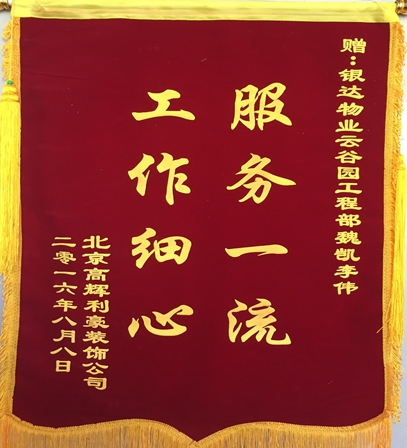 赠：银达物业云谷园工程部魏凯李伟
服务一流
工作细心
北京高辉利豪装饰公司
二零一六年八月八日